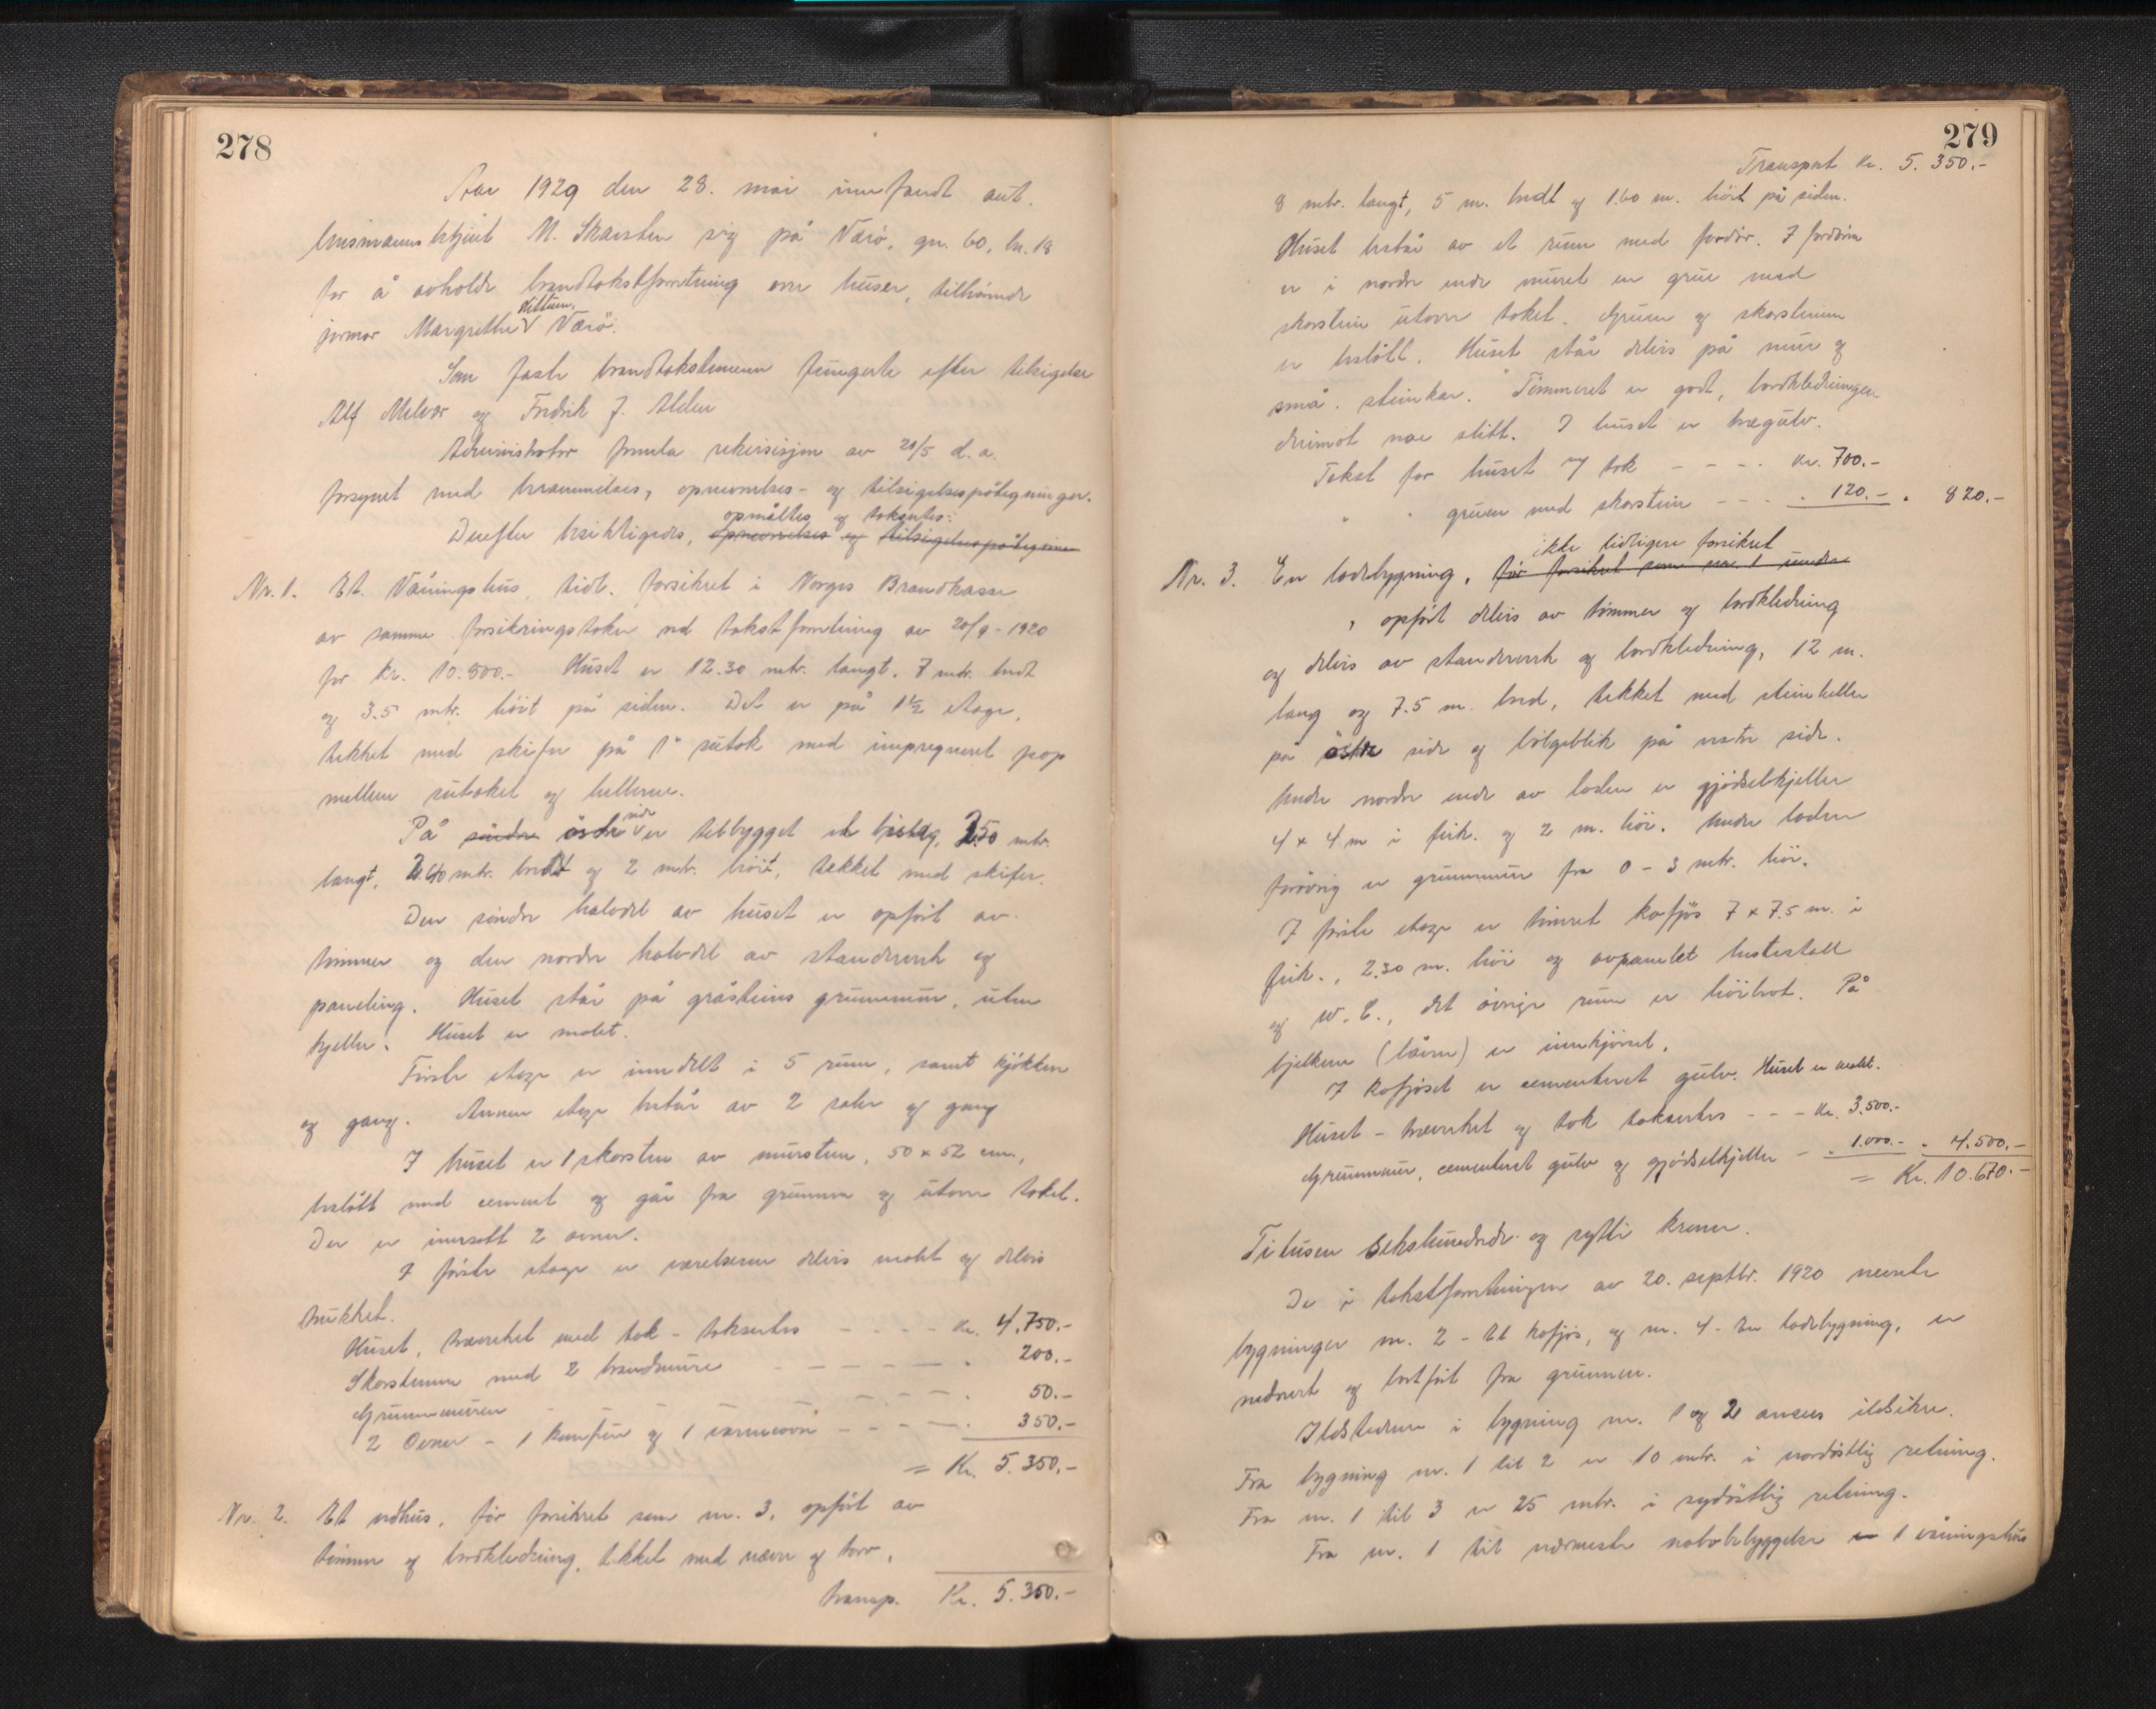 278
Aar 1929 den 28. mai innfandt aut.
lensmannsbetjent M. Skarsten sig på Værö, gn. 60, bn. 18
for å avholde brandtakstforretning over huser, tilhörende
jormor Margrethe Værö.
Som faste brandtakstmenn fungerte efter tilsigelse
Alf Melvær og Fredrik J. Alden
Administrator fremla rekvisisjon av 21/5 d. a.
forsynet med berammelses, opnevnelses- og tilsigelsespåtegninger.
opmåltes og takseres:
Derefter besiktigedes, opnevnelses og tilsigelsespåtegninger
Nr. 1. Et Våningshus, tidl. forsikret i Norges Brandkasse
av samme forsikringstaker ved takstforretning av 20/9 - 1920
for kr. 10.500.- Huset er 12.30 mtr. langt, 7 mtr. bredt
og 3.5 mtr. höit på siden. Det er på 1½ etage,
tekket med skifer på 1" sutak med impregneret pap
mellem sutaket og hellerne.
side
På söndre östre er tilbygget et bislag, 2.50 mtr.
langt, mtr. bredt og 2 mtr. höit, tekket med skifer.
Den söndre halvdel av huset er opfört av
tömmer og den nordre halvdel av standerverk og
paneling. Huset står på gråsteins grunnmur, uten
kjeller. Huset er malet.
Förste etage er inndelt i 5 rum, samt kjökken
og gang. Annen etage består av 2 saler og gang
I huset er 1 skorsten av mursten, 50 x 52 cm.,
beslått med cement og går fra grunnen og utover taket.
Der er innsatt 2 ovner.
I förste etage er værelserne delvis malt og delvis
trukket.
Huset, træverket med tak - takseres - - - - kr. 4.750.-
Skorstenen med 2 brandmure - - - - - " 200.-
Grunnmuren - - - - - - " 50.-
2 Ovner - 1 komfür og 1 varmeovn - - - - " 350.-
= Kr. 5.350.-
Nr. 2. Et vedhus, för forsikret som nr. 3, opfört av
tömmer og bordkledning, tekket med næver og torv,
transp. Kr. 5.350.-
279
Transport kr. 5.350.-
8 mtr. langt, 5 m. bredt og 1.60 m. höit på siden.
Huset består av et rum med fordör. I fordören
er i nordre ende muret en grue med
skorstein utover taket. Gruen og skorsteinen
er beslått. Huset står delvis på mur og
små steinkar. Tömmeret er godt, bordkledningen
derimot noe slitt. I huset er trægulv.
Takst for huset og tak - - - - kr. 700.-
" " gruen med skorstein - - - " 120.- " 820.-
ikke tidligere forsikret
Nr. 3. En ladebygning, för forsikret som nr. 1 under
, opfört delvis av tömmer og bordkledning
og delvis av standerverk og bordkledning, 12 m.
lang og 7.5 m. bred, tekket med steinheller
på östre side og bölgeblik på vestre side.
Under nordre ende av laden er gjödselkjeller
4 x 4 m i firk. og 2 m. höi. Under laden
forövrig er grunnmur fra 0 - 3 mtr. höi.
I förste etage er tömret kofjös 7 x 7.5 m. i
firk., 2.30 m. höi og avpanelet hestestall
og W. C., det övrige rum er höibrot. På
bjelkene (låven) er innkjörsel.
I kofjöset er cementeret gulv. Huset er malt.
Huset - træverket og tak takseres - - - kr. 3.500.-
Grunnmur, cementeret gulv og gjödselkjeller - " 1.000.- " 4.500.-
= Kr. 10.670.-
Titusen sekshundrede og sytti kroner.
De i takstforretningen av 20. septbr. 1920 nevnte
bygninger nr. 2 - Et kofjös, og nr. 4 - En ladebygning, er
nedrevet og bortfört fra grunnen.
Ildstedene i bygning nr. 1 og 2 ansees ildsikre.
Fra bygning nr. 1 til 2 er 10 mtr. i nordöstlig retning.
Fra nr. 1 til 3 er 25 mtr. i sydöstlig retning.
Fra nr. 1 til nærmeste nabobebyggelse er 1 våningshus